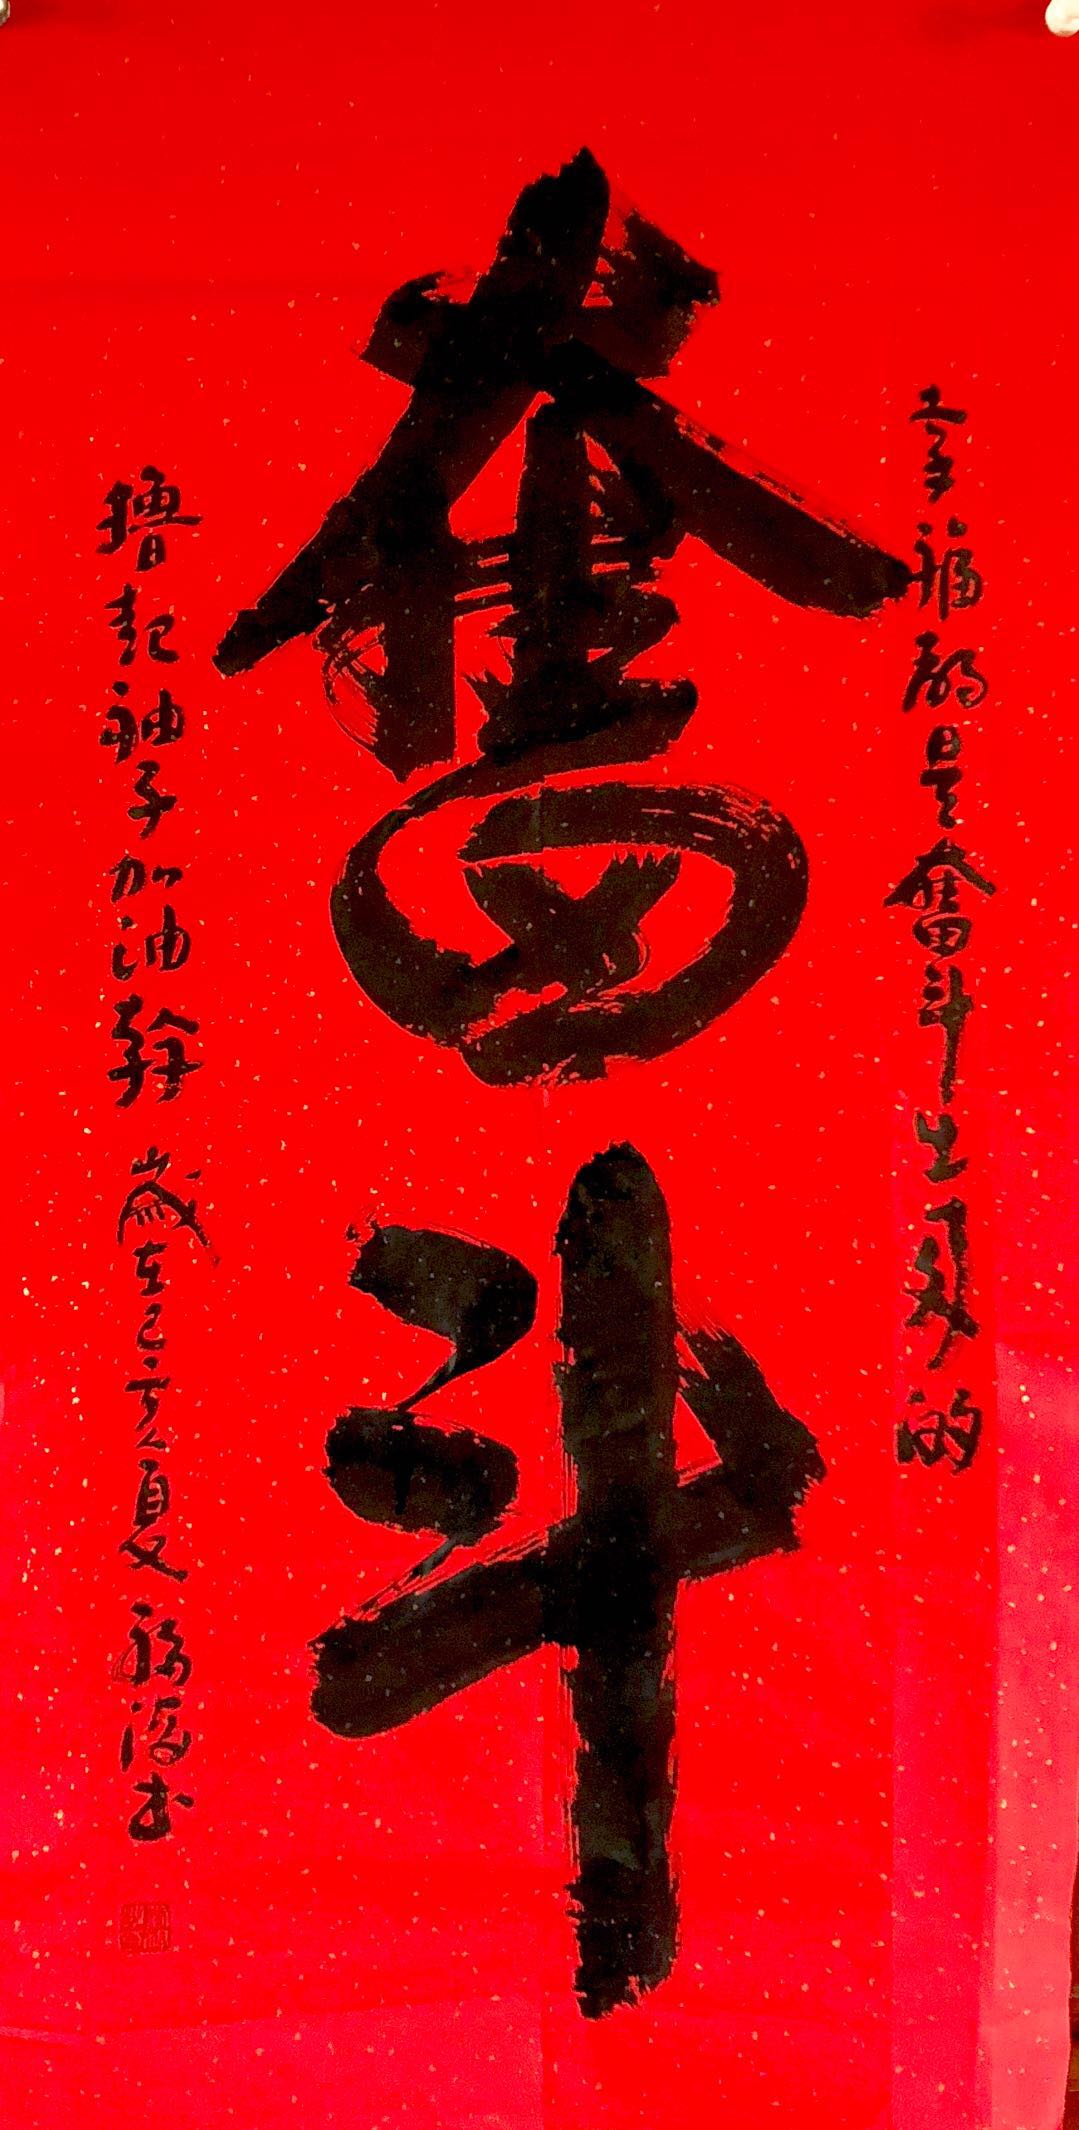 幸福都是奮斗出来的
奮斗
擼起袖子加油幹 歲在己亥夏